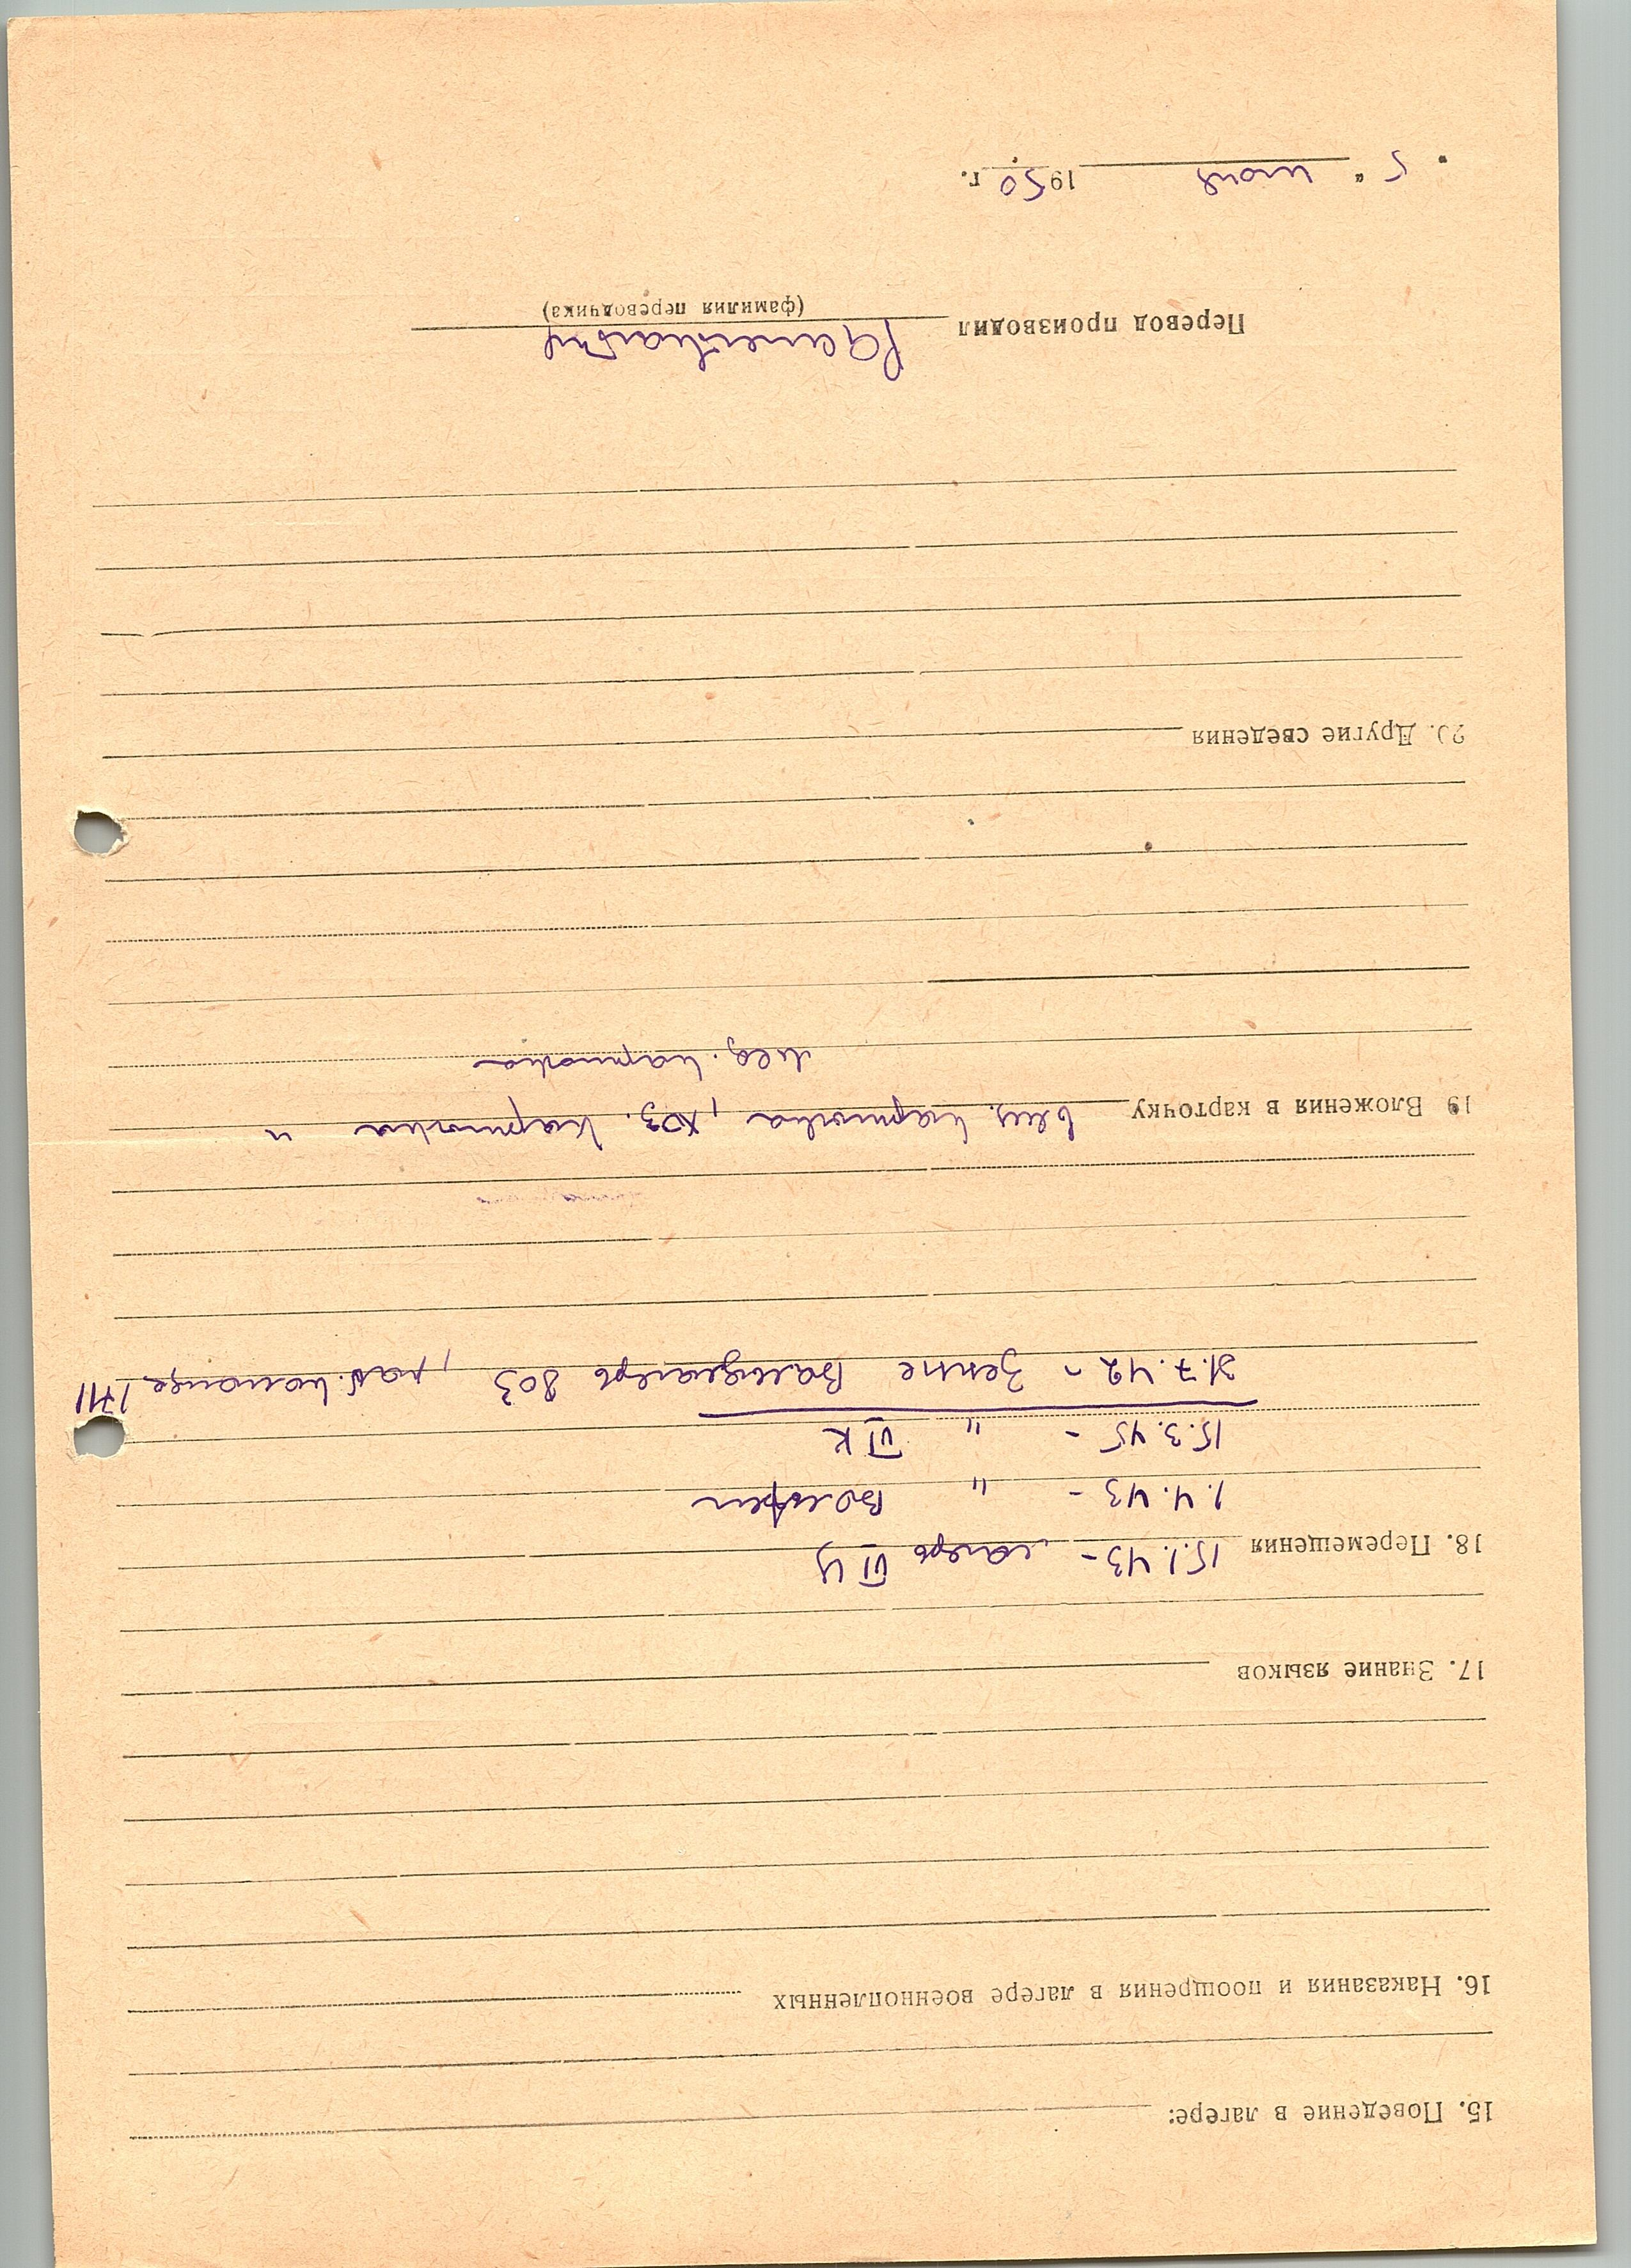 15. Поведение в лагере:
16. Наказания и поощрения в лагере военнопленных
17. Знание языков
18. Перемещения 15.1.43 - лагерь VI
1.4.43 - "
15.3.45 - " VI К
31.7.42 - Зенне Вальдлагерь 803, раб. команде 1711
19 Вложения в карточку вещ. карточка, хоз. карточка и
мед. карточка
20. Другие сведения
Перевод производил
(фамилия переводчика)
" 5 " 1950 г.